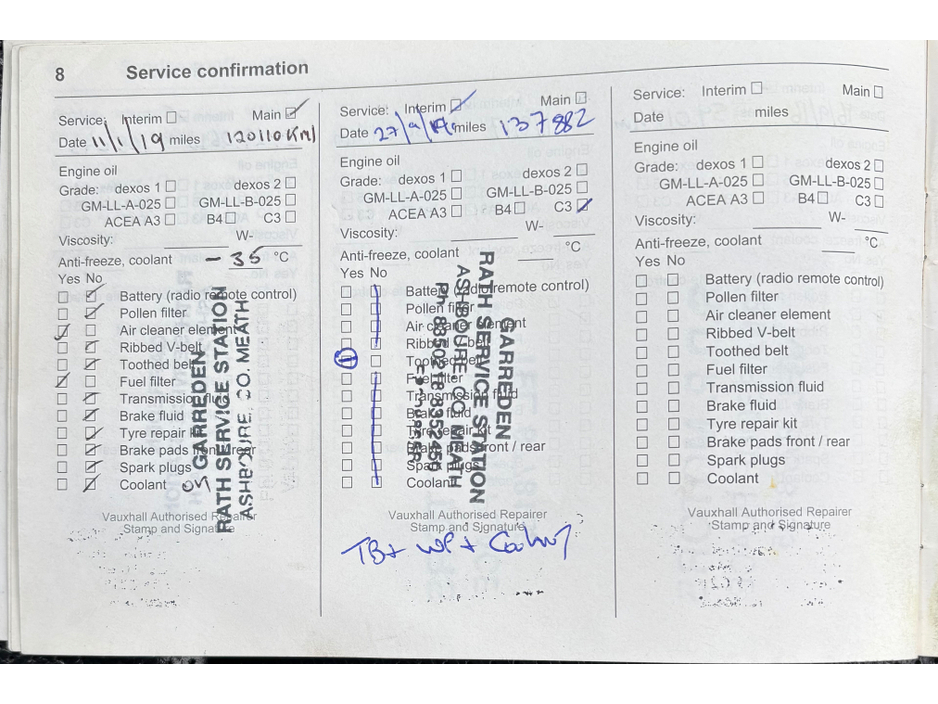 8 Service confirmation
Service: Interim ☐ Main ☑
Date 11/1/19 miles 120110 KM
Engine oil
Grade: dexos 1 ☐ dexos 2 ☐
GM-LL-A-025 ☐ GM-LL-B-025 ☐
ACEA A3 ☐ B4 ☐ C3 ☐
Viscosity: W-
Anti-freeze, coolant -35 °C
Yes No
☐ ☑ Battery (radio remote control)
☐ ☑ Pollen filter
☑ ☐ Air cleaner element
☐ ☑ Ribbed V-belt
☐ ☑ Toothed belt
☑ ☐ Fuel filter
☐ ☑ Transmission fluid
☐ ☑ Brake fluid
☐ ☑ Tyre repair kit
☐ ☑ Brake pads front / rear
☐ ☑ Spark plugs
☐ ☑ Coolant
GARREDEN
RATH SERVICE STATION
ASHBOURE, CO. MEATH
Vauxhall Authorised Repairer
Stamp and Signature
Service: Interim ☑ Main ☐
Date 27/9/19 miles 137882
Engine oil
Grade: dexos 1 ☐ dexos 2 ☐
GM-LL-A-025 ☐ GM-LL-B-025 ☐
ACEA A3 ☐ B4 ☐ C3 ☑
Viscosity: W-
Anti-freeze, coolant °C
Yes No
Battery (radio remote control)
Pollen filter
Air cleaner element
Ribbed V-belt
Toothed belt
Fuel filter
Transmission fluid
Brake fluid
Tyre repair kit
Brake pads front / rear
Spark plugs
Coolant
GARREDEN
RATH SERVICE STATION
ASHBOURE CO MEATH
Ph 8350218 8352450
Vauxhall Authorised Repairer
Stamp and Signature
TB + WP +
Service: Interim ☐ Main ☐
Date miles
Engine oil
Grade: dexos 1 ☐ dexos 2 ☐
GM-LL-A-025 ☐ GM-LL-B-025 ☐
ACEA A3 ☐ B4 ☐ C3 ☐
Viscosity: W-
Anti-freeze, coolant °C
Yes No
☐ ☐ Battery (radio remote control)
☐ ☐ Pollen filter
☐ ☐ Air cleaner element
☐ ☐ Ribbed V-belt
☐ ☐ Toothed belt
☐ ☐ Fuel filter
☐ ☐ Transmission fluid
☐ ☐ Brake fluid
☐ ☐ Tyre repair kit
☐ ☐ Brake pads front / rear
☐ ☐ Spark plugs
☐ ☐ Coolant
Vauxhall Authorised Repairer
Stamp and Signature